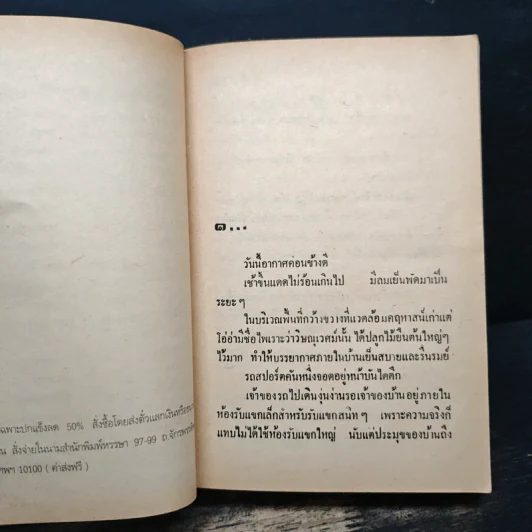 เฉพาะปกแข็งลด 50% สั่งซื้อโดยส่งตั๋วแลกเงินหรือธนา
น สั่งจ่ายในนามสำนักพิมพ์หรรษา 97-99 ถ.จักรพรรดิ
เทพฯ 10100 ( ค่าส่งฟรี )
๑...
วันนี้อากาศค่อนข้างดี
เช้าขึ้นแดดไม่ร้อนเกินไป มีลมเย็นพัดมาเป็น
ระยะ ๆ
ในบริเวณพื้นที่กว้างขวางที่แวดล้อมคฤหาสน์เก่าแต่
โอ่อ่ามีชื่อไพเราะว่าวิษณุเวศม์นั้น ได้ปลูกไม้ยืนต้นใหญ่ๆ
ไว้มาก ทำให้บรรยากาศภายในบ้านเย็นสบายและรื่นรมย์
รถสปอร์ตคันหนึ่งจอดอยู่หน้าบันไดตึก
เจ้าของรถไปเดินงุ่นง่านรอเจ้าของบ้านอยู่ภายใน
ห้องรับแขกเล็กสำหรับรับแขกสนิท ๆ เพราะความจริงก็
แทบไม่ได้ใช้ห้องรับแขกใหญ่ นับแต่ประมุขของบ้านถึง